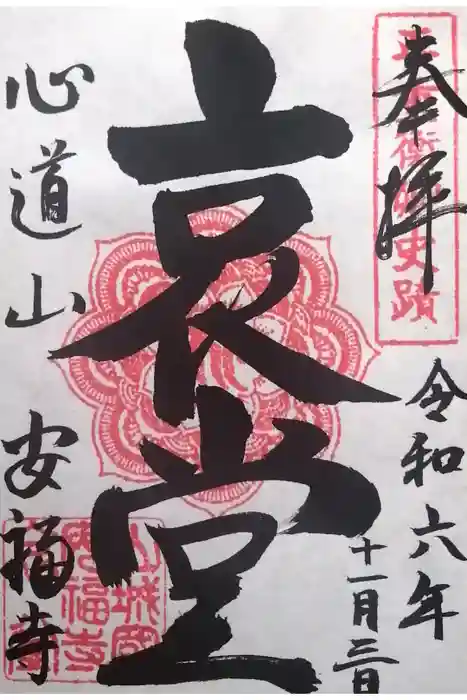 奉拝
平重衡卿史蹟
令和六年
十一月三日
哀堂
心道山 安福寺
山城國
安福寺